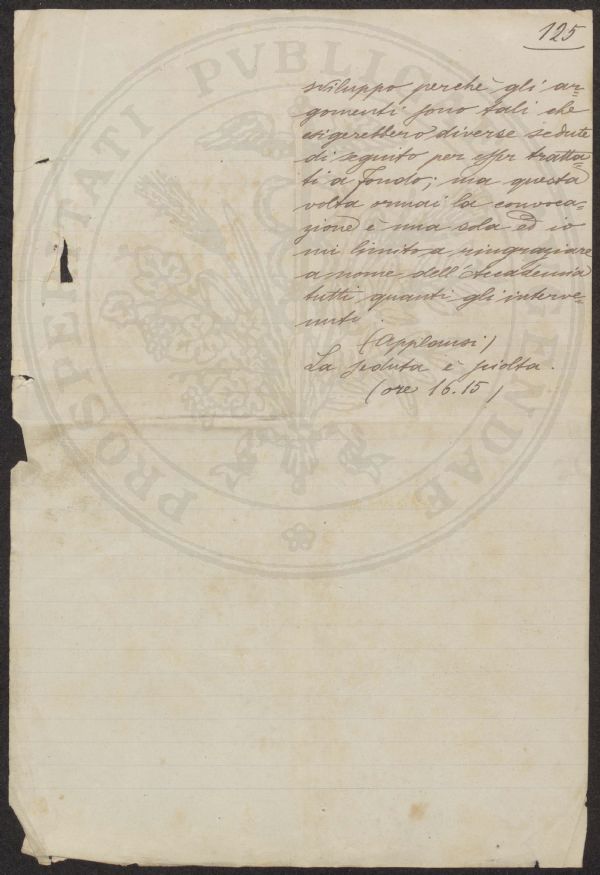 125
sviluppo perchè gli ar=
gomenti sono tali che
esigerebbero diverse sedute
di seguito per esser tratta=
ti a fondo; ma questa
volta ormai la convoca=
zione è una sola ed io
mi limito a ringraziare
a nome dell'Accademia
tutti quanti gli interve=
nuti.
(Applausi)
La seduta è sciolta.
(ore 16.15)
PROSPERITATI PVBLICAE AVGENDAE